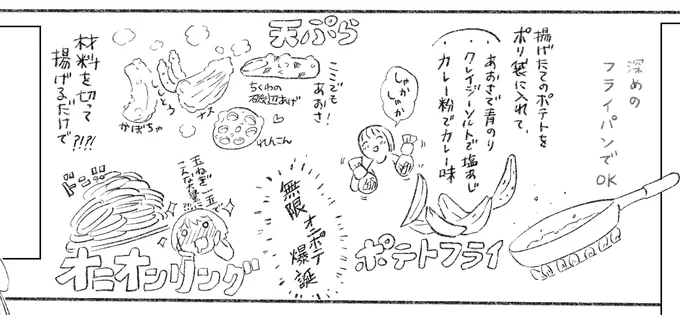 深めの
フライパンで
OK
揚げたてのポテトを
ポリ袋に入れて、
あおさで青のり
クレイジーソルトで塩あじ
カレー粉でカレー味
しゃか
しゃか
ポテトフライ
天ぷら
ここでも
あおさ!
ちくわの
磯辺あげ
れんこん
ナス
ししとう
かぼちゃ
材料を切って
揚げるだけで
?!?!
無限オニポテ
爆誕
玉ねぎ一玉で
こんな大量!!
ドン!!
オニオンリング